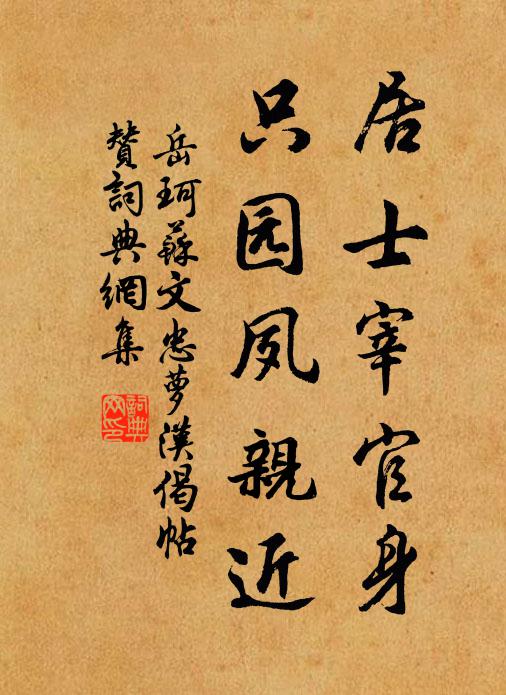 居士宰官身
只园夙親近
岳珂蘇文忠夢漢偈帖
贊詞典網集
詞典网印